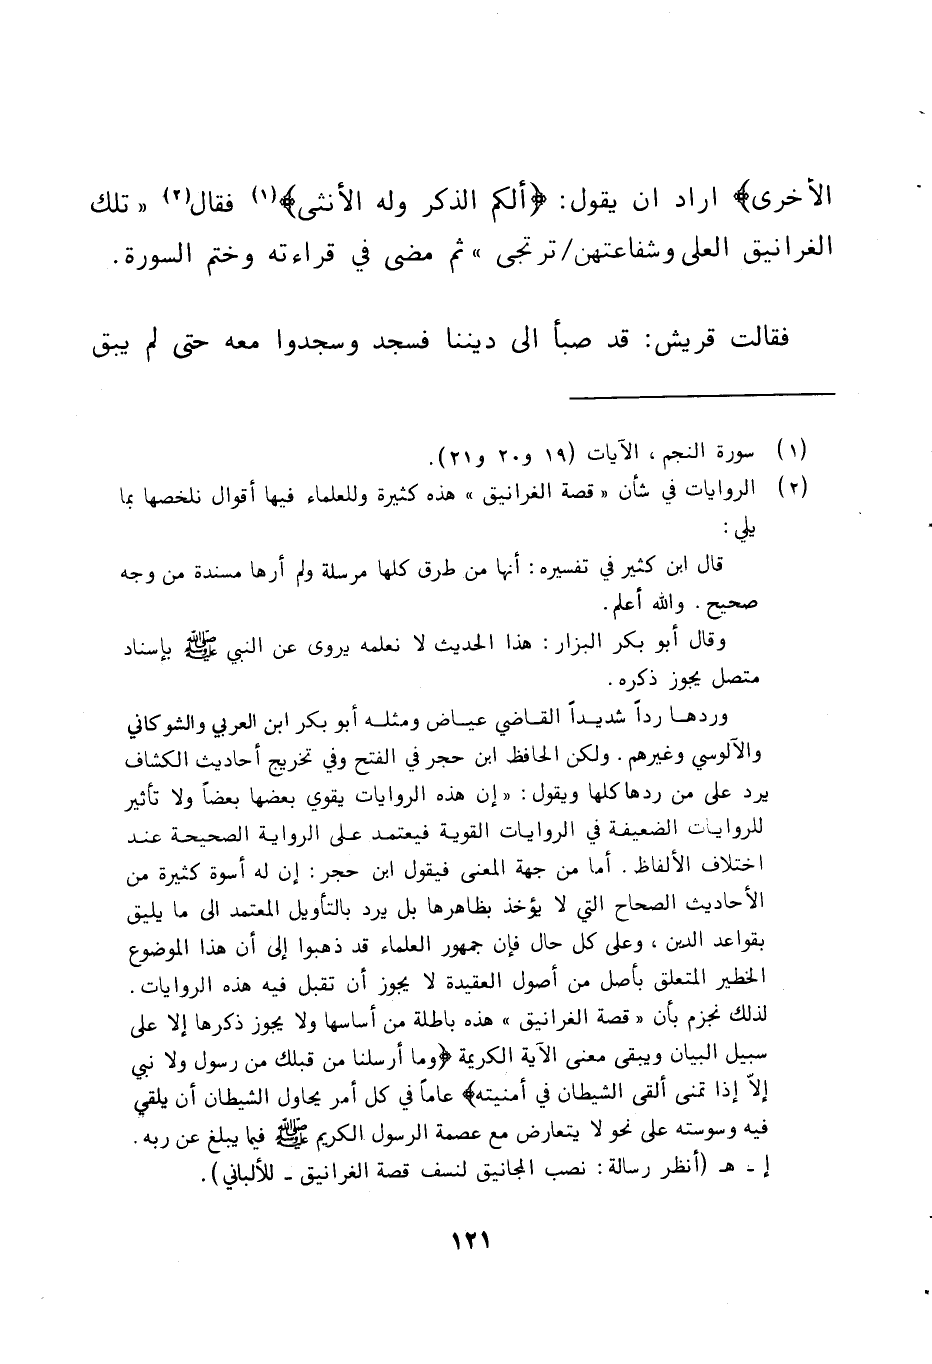 الأخرى﴾ اراد ان يقول: ﴿ألكم الذكر وله الأنثى﴾(١) فقال(٢) « تلك
الغرانيق العلى وشفاعتهن/ترتجى » ثم مضى في قراءته وختم السورة.
فقالت قريش: قد صبأ الى ديننا فسجد وسجدوا معه حتى لم يبق
(١) سورة النجم ، الآيات (١٩ و٢٠ و٢١).
(٢) الروايات في شأن « قصة الغرانيق » هذه كثيرة وللعلماء فيها أقوال نلخصها بما
يلي :
قال ابن كثير في تفسيره : أنها من طرق كلها مرسلة ولم أرها مسندة من وجه
صحيح . والله أعلم.
وقال أبو بكر البزار : هذا الحديث لا نعلمه يروى عن النبي ﷺ بإسناد
متصل يجوز ذكره .
وردهـا رداً شديـداً القـاضي عيـاض ومثلـه أبو بكر ابن العربي والشوكاني
والآلوسي وغيرهم . ولكن الحافظ ابن حجر في الفتح وفي تخريج أحاديث الكشاف
يرد على من ردها كلها ويقول : « إن هذه الروايات يقوي بعضها بعضاً ولا تأثير
للروايات الضعيفة في الروايات القوية فيعتمد على الرواية الصحيحة عند
اختلاف الألفاظ . أما من جهة المعنى فيقول ابن حجر : إن له أسوة كثيرة من
الأحاديث الصحاح التي لا يؤخذ بظاهرها بل يرد بالتأويل المعتمد الى ما يليق
بقواعد الدين ، وعلى كل حال فإن جمهور العلماء قد ذهبوا إلى أن هذا الموضوع
الخطير المتعلق بأصل من أصول العقيدة لا يجوز أن تقبل فيه هذه الروايات .
لذلك نجزم بأن « قصة الغرانيق » هذه باطلة من أساسها ولا يجوز ذكرها إلا على
سبيل البيان ويبقى معنى الآية الكريمة ﴿وما أرسلنا من قبلك من رسول ولا نبي
إلاّ إذا تمنى ألقى الشيطان في أمنيته﴾ عاماً في كل أمر يحاول الشيطان أن يلقي
فيه وسوسته على نحو لا يتعارض مع عصمة الرسول الكريم ﷺ فيما يبلغ عن ربه .
إ - هـ (أنظر رسالة : نصب المجانيق لنسف قصة الغرانيق - للألباني).
١٢١